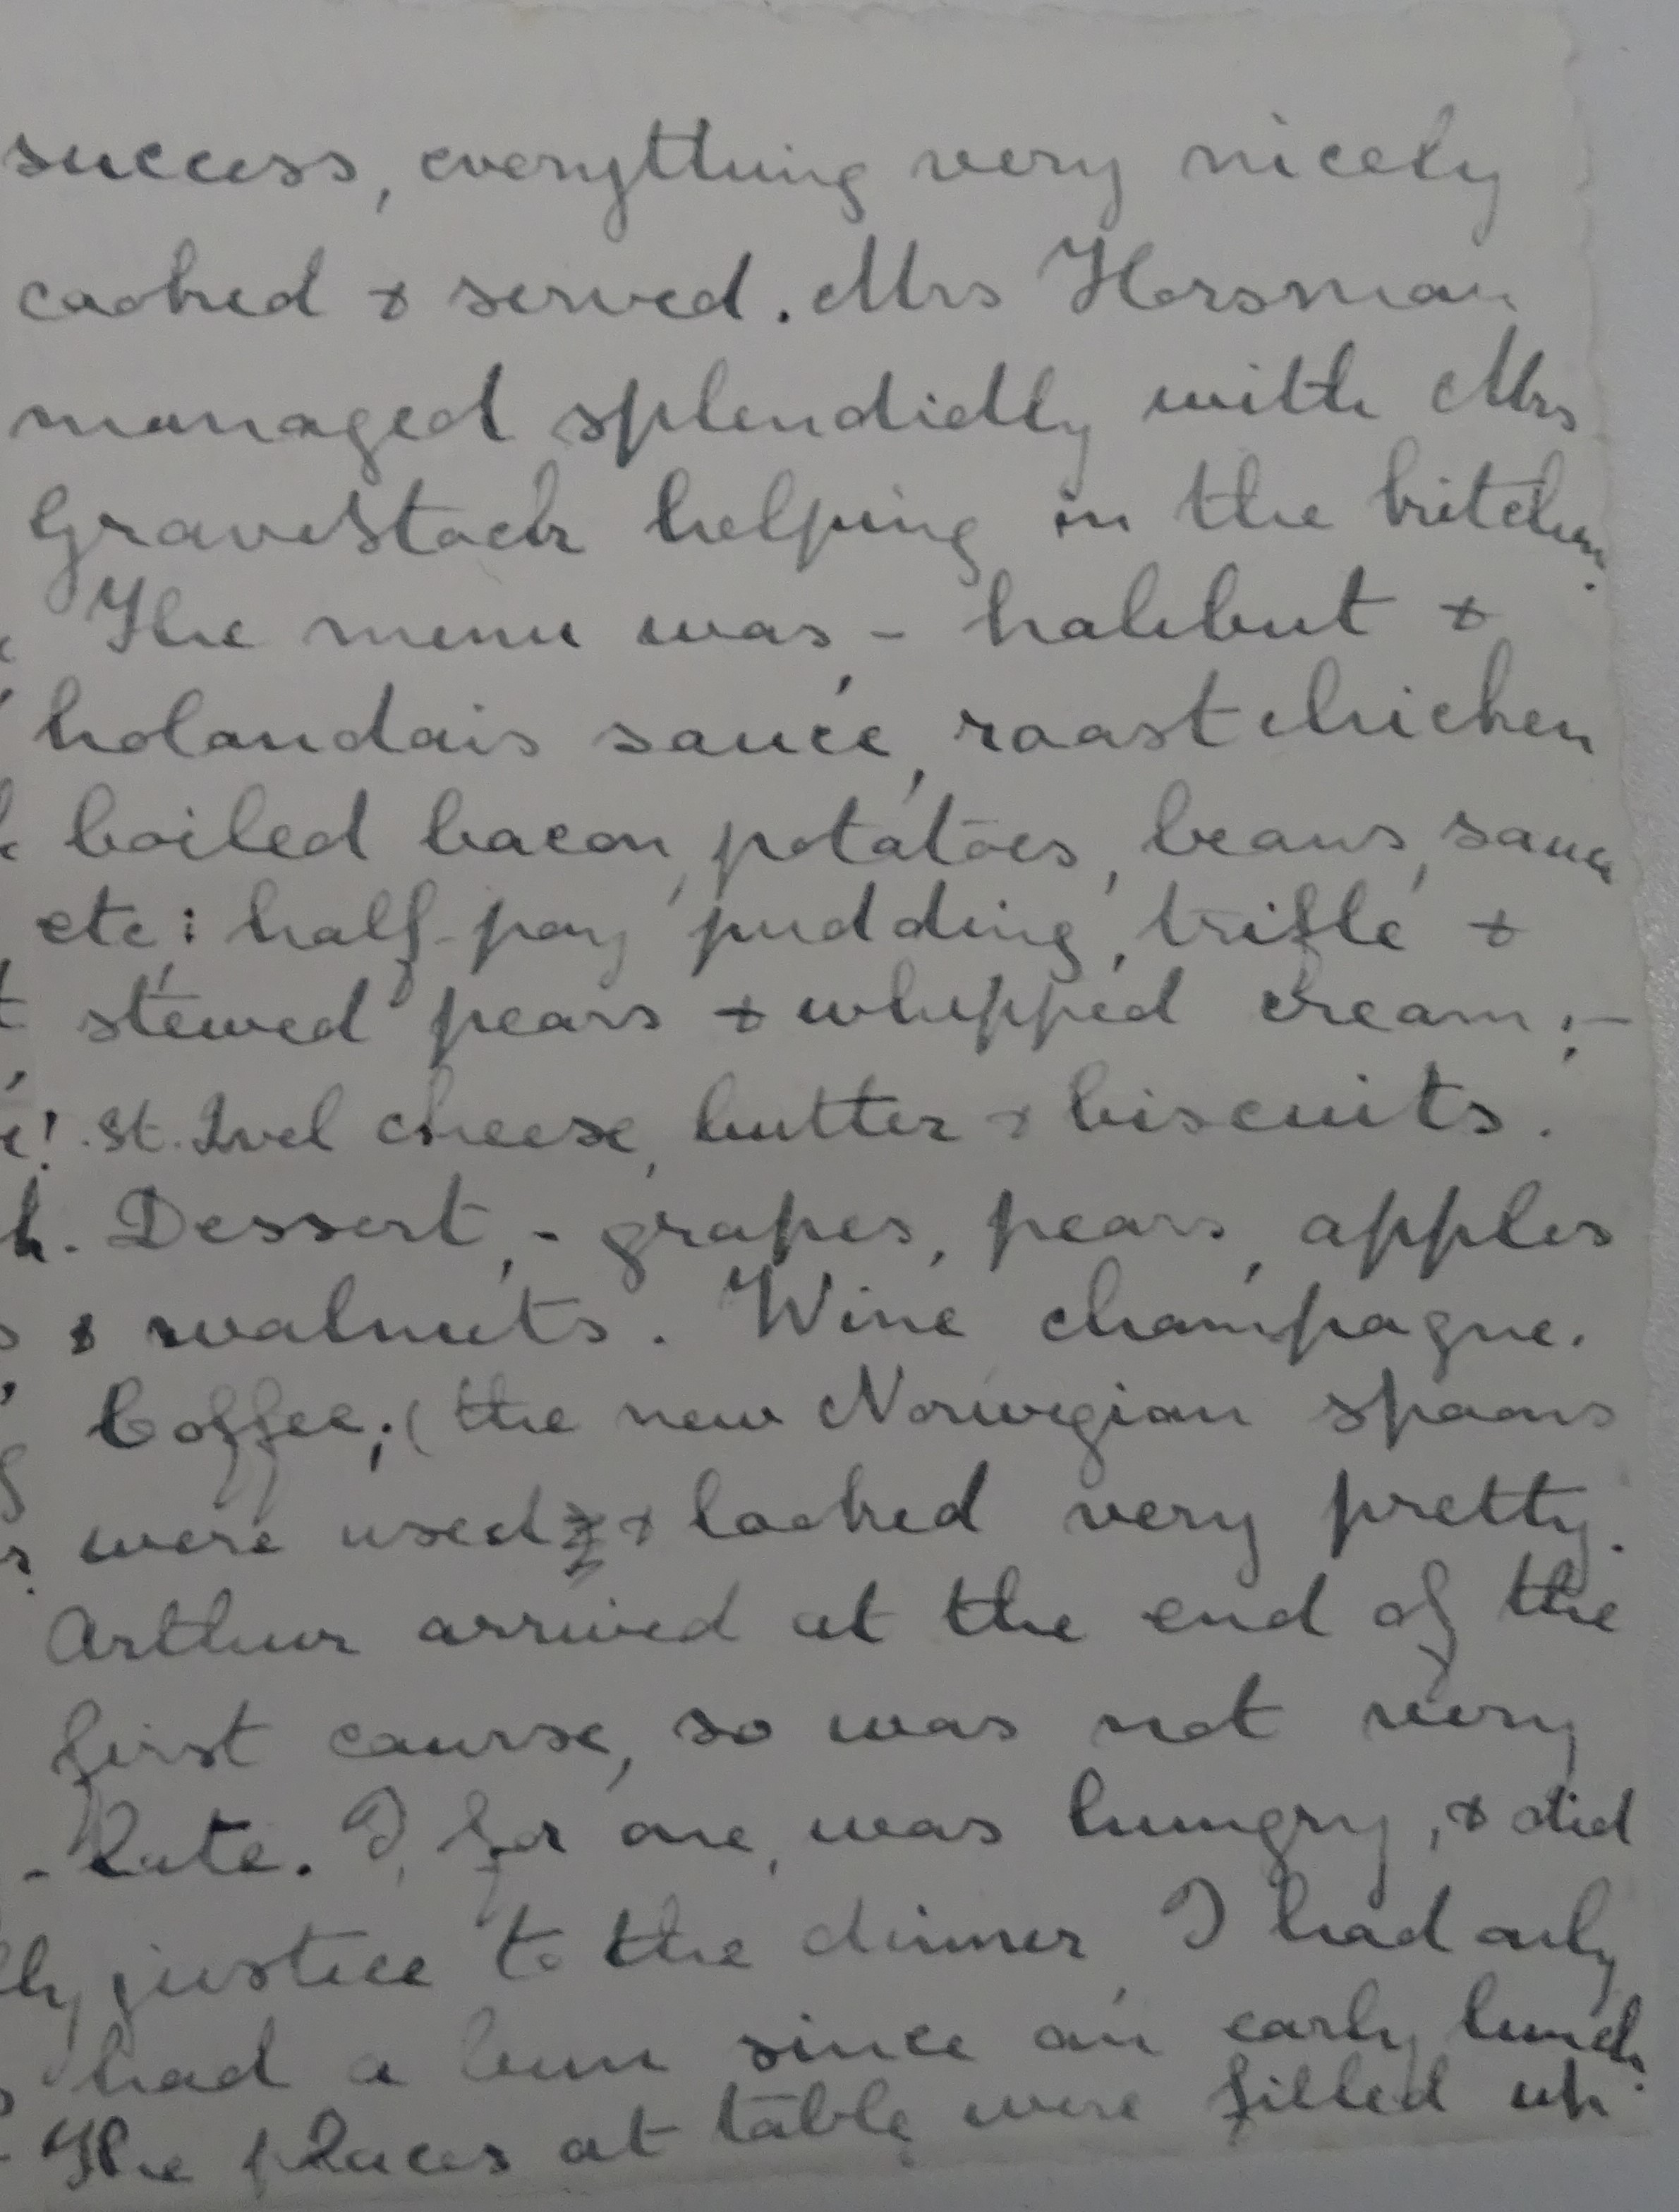 success, everything very nicely
cooked & served. Mrs Horsman
managed splendidly with Mrs
Gravestock helping in the kitchen.
The menu was, - halibut &
holandais sauce, roast chicken
boiled bacon, potatoes, beans, sauce
etc: half-pay pudding, trifle &
stewed pears & whipped cream;-
St. Ivel cheese, butter & biscuits.
Dessert, - grapes, pears, apples
& walnuts. Wine champagne.
Coffee; (the new Norwegian spoons
were used & looked very pretty.
Arthur arrived at the end of the
first course, so was not very
late. I, for one, was hungry, & did
justice to the dinner, I had only
had a bun since an early lunch.
The places at table were filled up